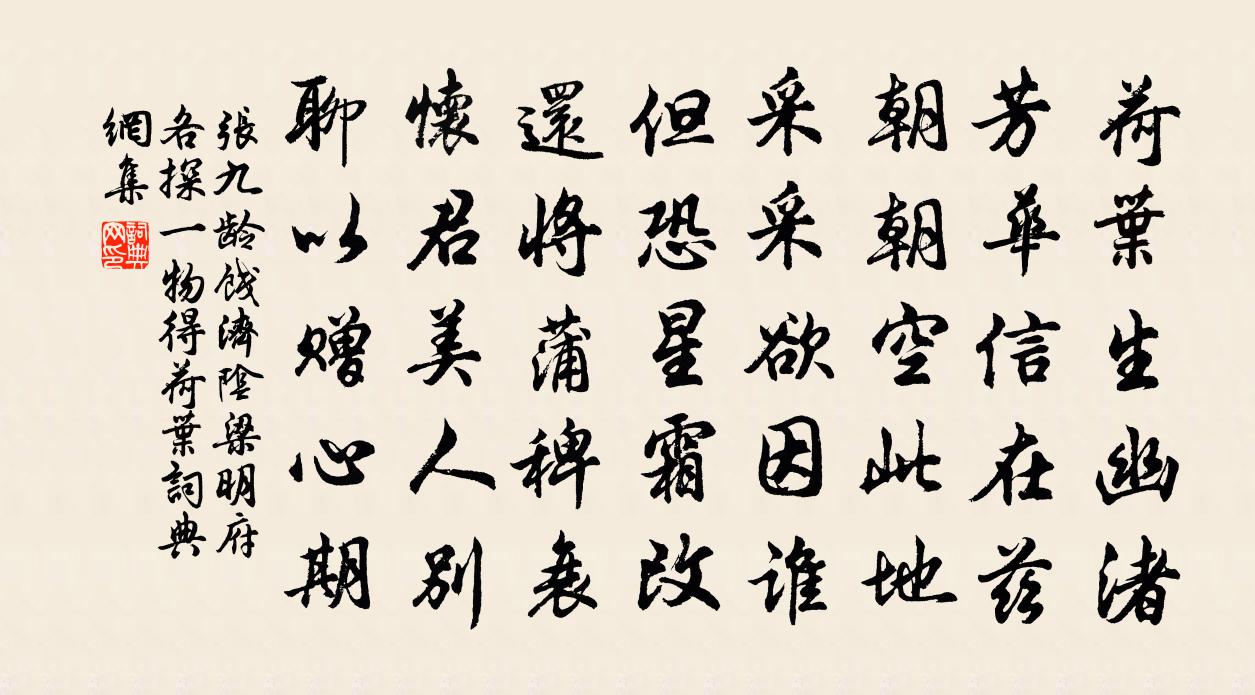 荷葉生幽渚
芳華信在茲
朝朝空此地
采采欲因誰
但恐星霜改
還將蒲稗衰
懷君美人別
聊以贈心期
張九齡餞濟陰梁明府
各探一物得荷葉詞典
網集
詞典
网印